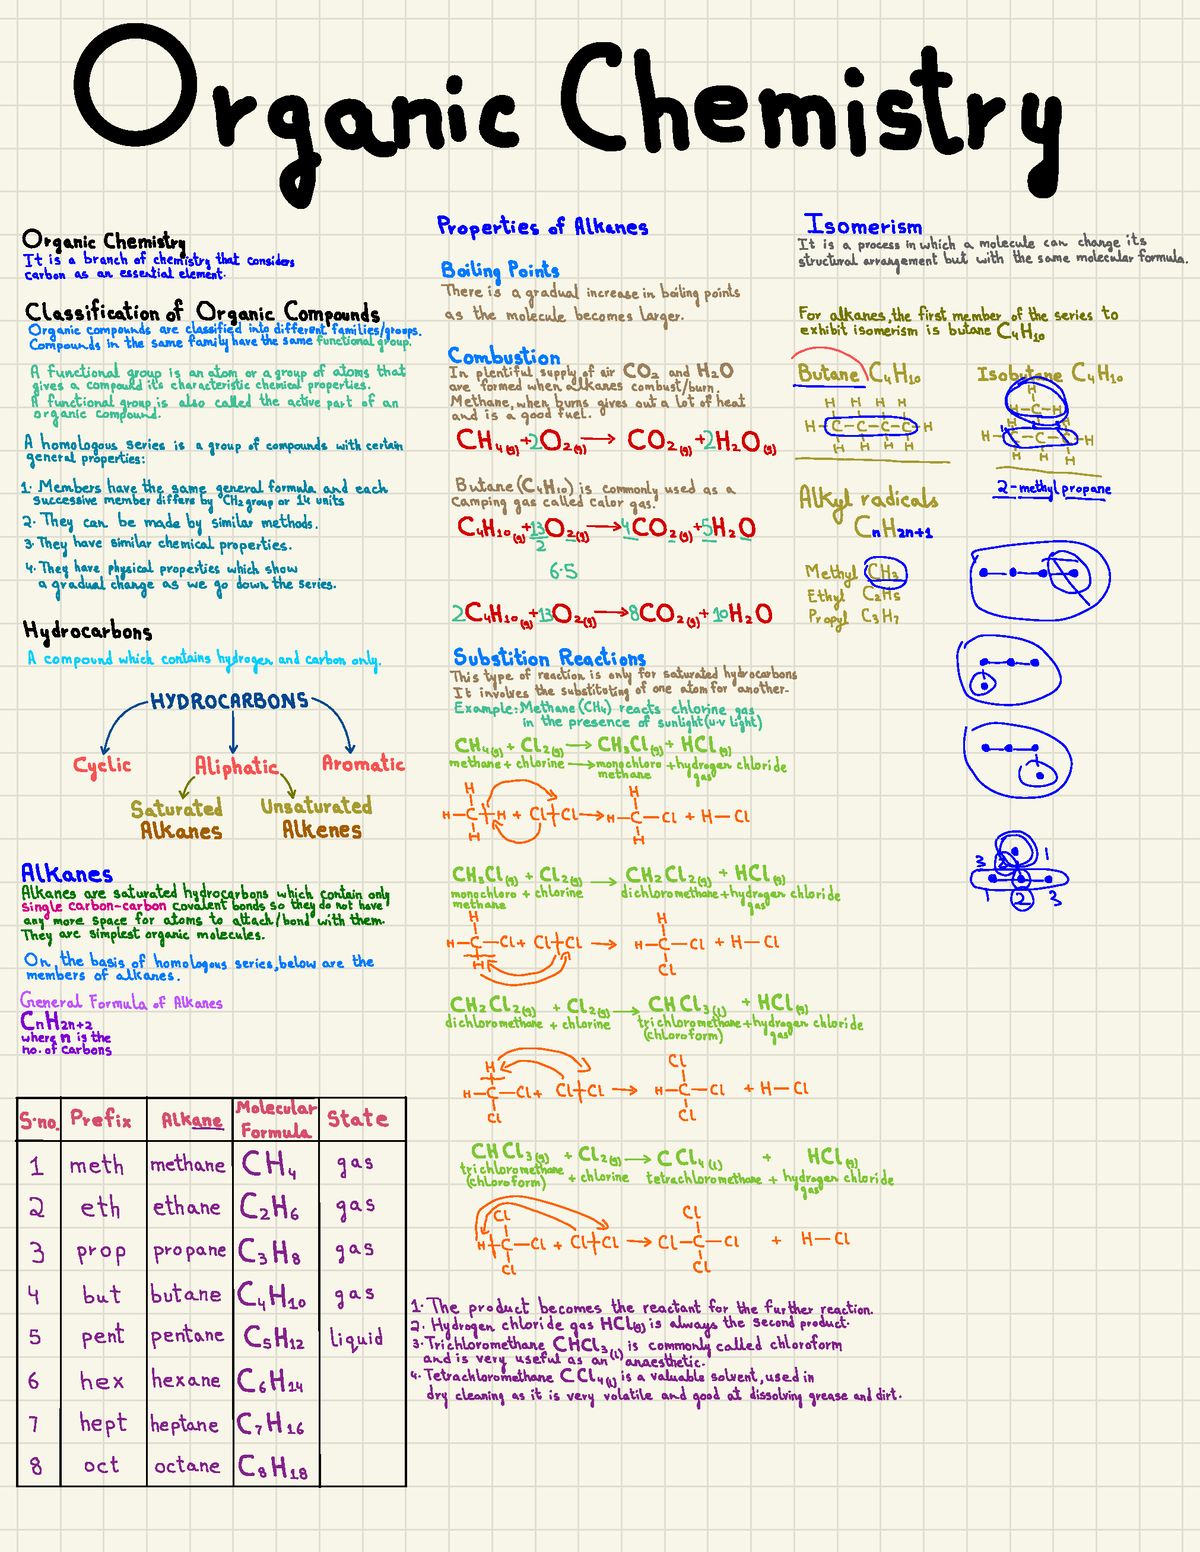 Organic Chemistry
Organic Chemistry
It is a branch of chemistry that considers
carbon as an essential element.
Classification of Organic Compounds
Organic compounds are classified into different families/groups.
Compounds in the same family have the same functional group.
A functional group is an atom or a group of atoms that
gives a compound it's characteristic chemical properties.
A functional group is also called the active part of an
organic compound.
A homologous series is a group of compounds with certain
general properties:
1. Members have the same general formula and each
successive member differs by CH2 group or 14 units
2. They can be made by similar methods.
3. They have similar chemical properties.
4. They have physical properties which show
a gradual change as we go down the series.
Hydrocarbons
A compound which contains hydrogen and carbon only.
HYDROCARBONS
Cyclic Aliphatic Aromatic
Saturated Unsaturated
Alkanes Alkenes
Alkanes
Alkanes are saturated hydrocarbons which contain only
single carbon-carbon covalent bonds so they do not have
any more space for atoms to attach/bond with them.
They are simplest organic molecules.
On the basis of homologous series, below are the
members of alkanes.
General Formula of Alkanes
CnH2n+2
where n is the
no. of carbons
S.no. Prefix Alkane Molecular Formula State
1 meth methane CH4 gas
2 eth ethane C2H6 gas
3 prop propane C3H8 gas
4 but butane C4H10 gas
5 pent pentane C5H12 liquid
6 hex hexane C6H14
7 hept heptane C7H16
8 oct octane C8H18
Properties of Alkanes
Boiling Points
There is a gradual increase in boiling points
as the molecule becomes larger.
Combustion
In plentiful supply of air CO2 and H2O
are formed when alkanes combust/burn.
Methane, when burns gives out a lot of heat
and is a good fuel.
CH4(g) + 2O2(g) → CO2(g) + 2H2O(g)
Butane (C4H10) is commonly used as a
camping gas called calor gas.
C4H10(g) + 13/2 O2(g) → 4CO2(g) + 5H2O
6.5
2C4H10(g) + 13O2(g) → 8CO2(g) + 10H2O
Substition Reactions
This type of reaction is only for saturated hydrocarbons
It involves the substitoting of one atom for another.
Example: Methane (CH4) reacts chlorine gas
in the presence of sunlight (u.v light)
CH4(g) + Cl2(g) → CH3Cl(g) + HCl(g)
methane + chlorine → monochloro + hydrogen chloride
methane gas
H H
H-C-H + Cl-Cl → H-C-Cl + H-Cl
H H
CH3Cl(g) + Cl2(g) → CH2Cl2(g) + HCl(g)
monochloro + chlorine dichloromethane + hydrogen chloride
methane gas
H H
H-C-Cl + Cl-Cl → H-C-Cl + H-Cl
H Cl
CH2Cl2(g) + Cl2(g) → CHCl3(l) + HCl(g)
dichloromethane + chlorine trichloromethane + hydrogen chloride
(chloroform) gas
H Cl
H-C-Cl + Cl-Cl → H-C-Cl + H-Cl
Cl Cl
CHCl3(g) + Cl2(g) → CCl4(l) + HCl(g)
trichloromethane + chlorine tetrachloromethane + hydrogen chloride
(chloroform) gas
Cl Cl
H-C-Cl + Cl-Cl → Cl-C-Cl + H-Cl
Cl Cl
1. The product becomes the reactant for the further reaction.
2. Hydrogen chloride gas HCl(g) is always the second product.
3. Trichloromethane CHCl3(l) is commonly called chloroform
and is very useful as an (l) anaesthetic.
4. Tetrachloromethane CCl4(l) is a valuable solvent, used in
dry cleaning as it is very volatile and good at dissolving grease and dirt.
Isomerism
It is a process in which a molecule can change its
structural arrangement but with the same molecular formula.
For alkanes, the first member of the series to
exhibit isomerism is butane C4H10
Butane C4H10 Isobutane C4H10
H H H H
H-C-C-C-C-H
H H H H
H
H-C-H
H-C-C-C-H
H H H
2-methyl propane
Alkyl radicals
CnH2n+1
Methyl CH3
Ethyl C2H5
Propyl C3H7
3 2 1
1 2 3